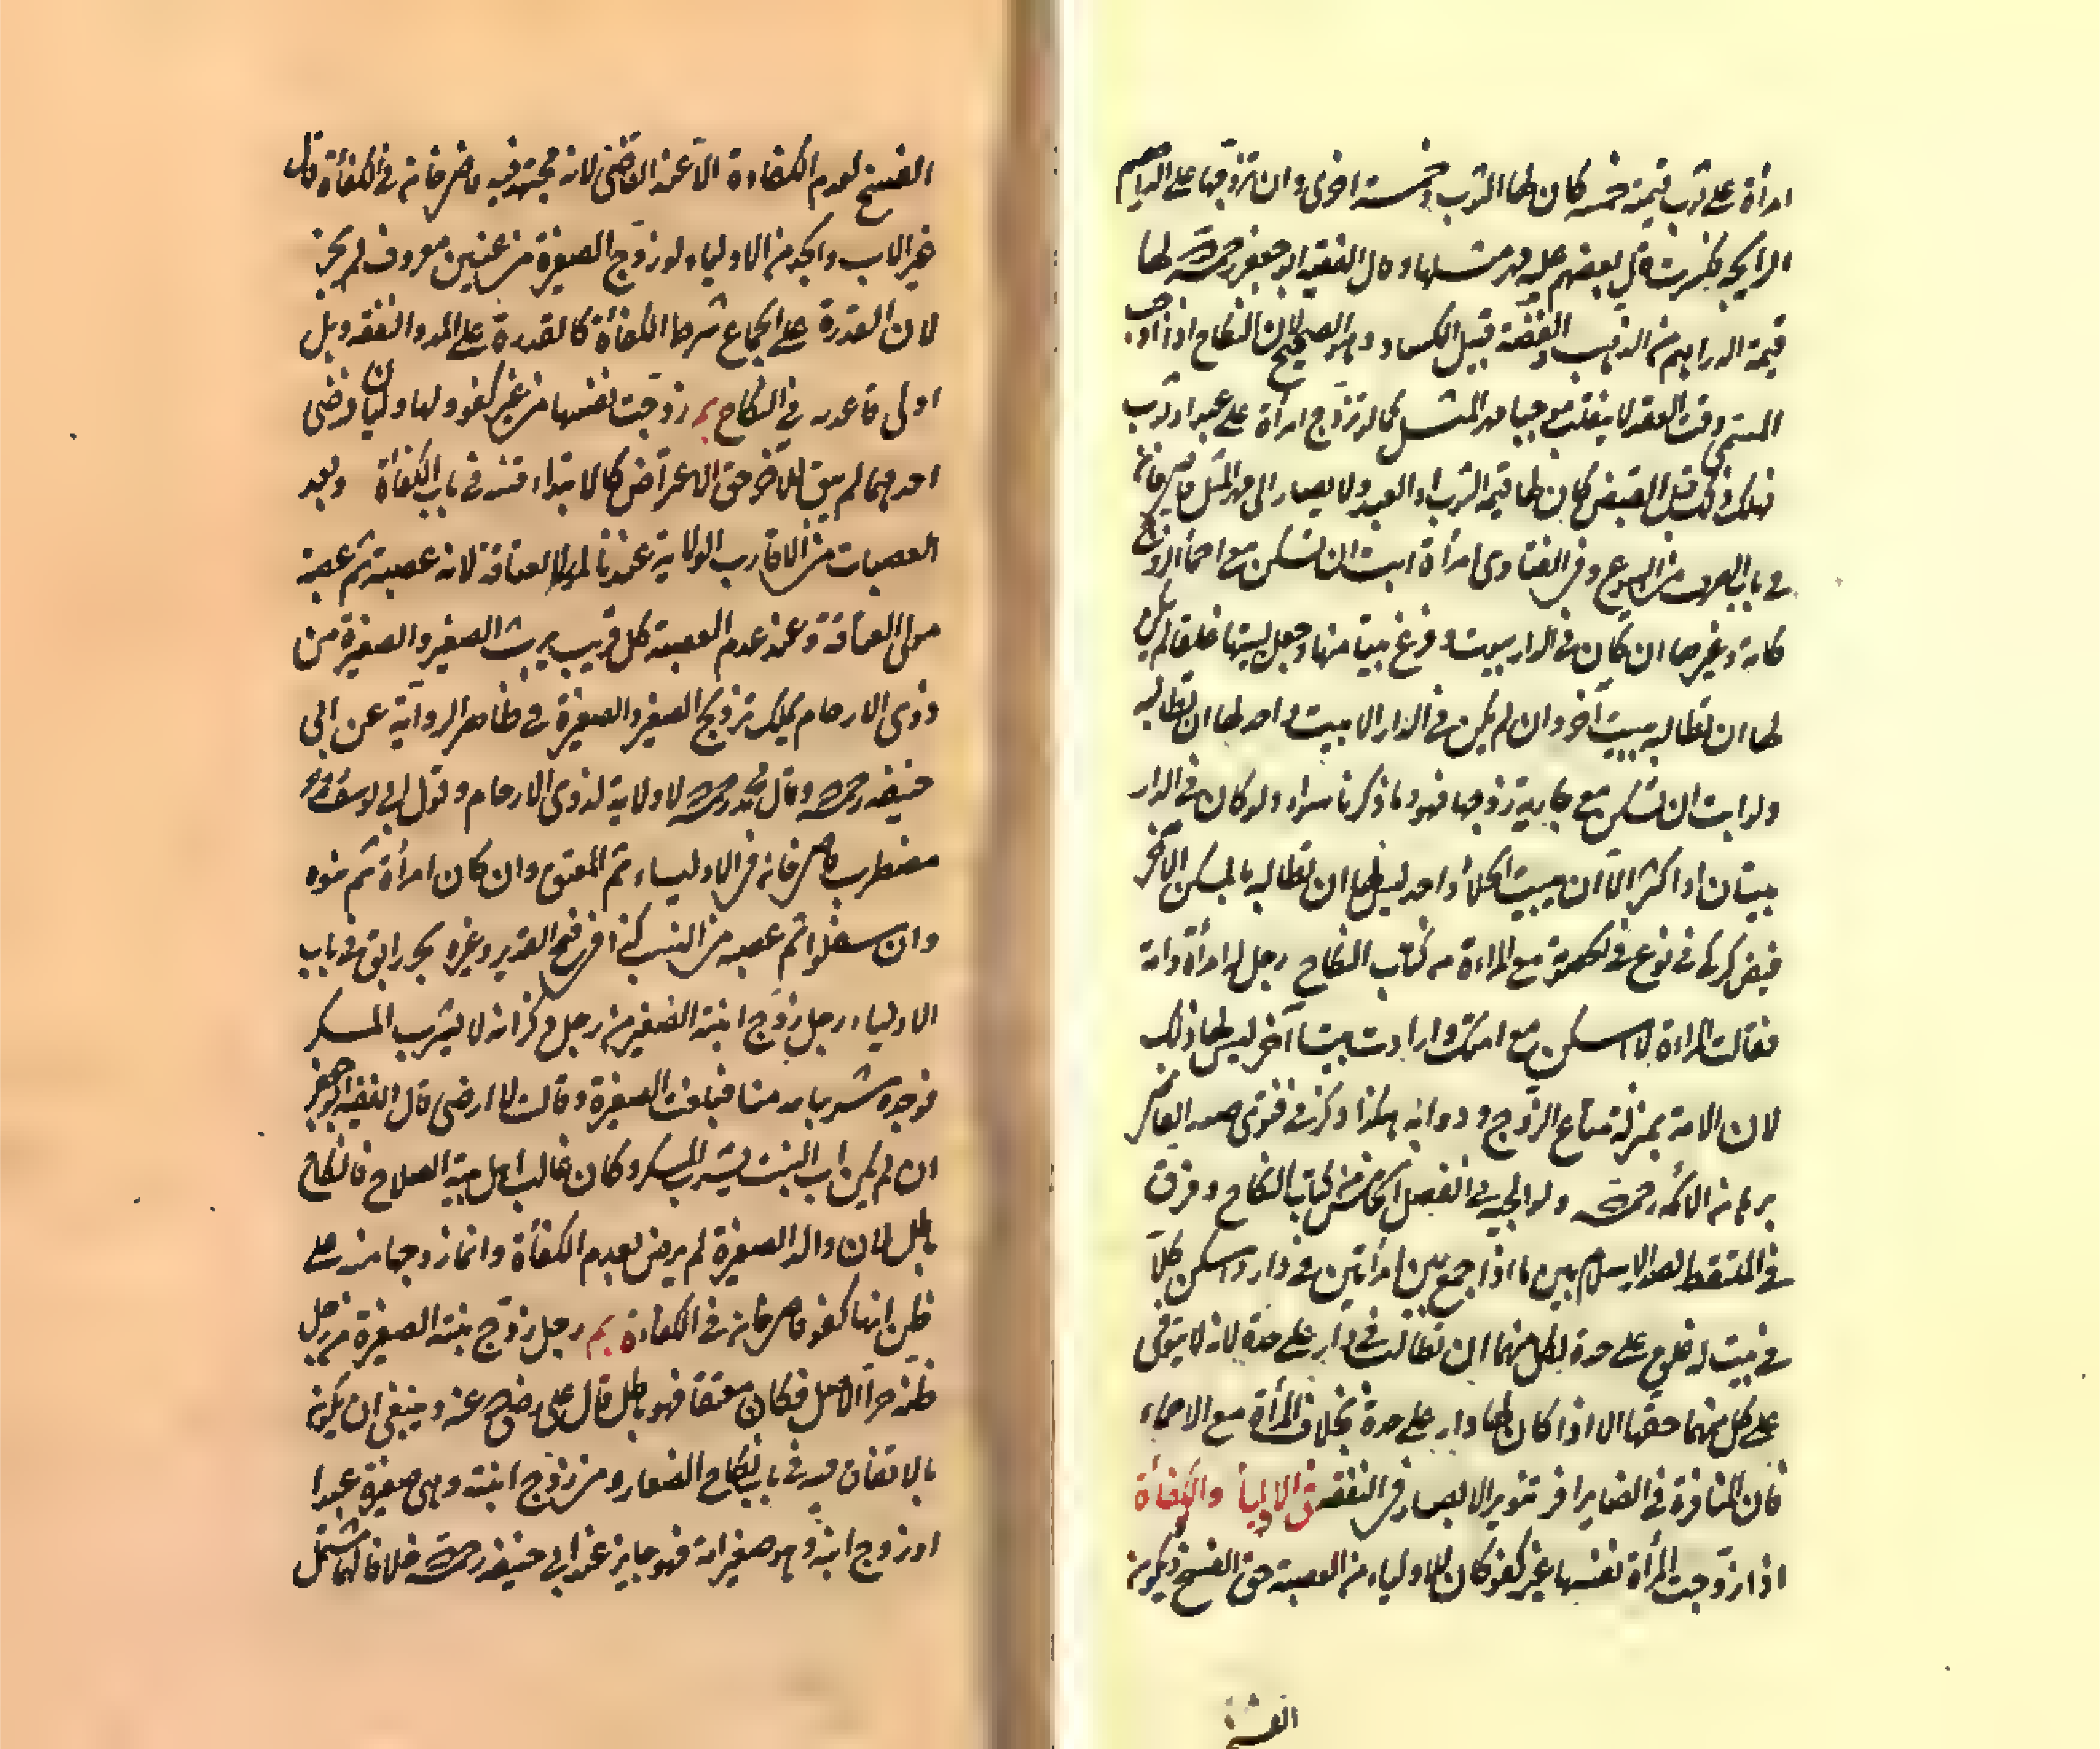 امرأة على ثوب قيمته خمسة كان لها الثوب وخمسة اخرى وان تزوجها على الدراهم
الرايجة فكسرت قال بعضهم عليه مهر مثلها وقال الفقيه ابو جعفر رحمه الله لها
قيمة الدراهم من الذهب والفضة قبيل الكساد وهو الصحيح لان النكاح اذا اوجب
المسمى وقت العقد لا ينقلب موجبا مهر المثل كما لو تزوج امرأة على عبد او ثوب
فهلك ذلك قبل القبض كان لها قيمة الثوب او العبد ولا يصار الى مهر المثل قاضيخان
في باب الصرف من البيوع وفي الفتاوى امرأة ابت ان تسكن مع احماء الزوج
كامه وغيرها ان كان في الدار بيوت وفرغ بيتا منها وجعل لبيتها غلقا لم يكن
لها ان تطالبه ببيت آخر وان لم يكن في الدار الا بيت واحد لها ان تطالبه
ولو ابت ان تسكن مع جارية زوجها فهو وما ذكرنا سواء ولو كان في الدار
بيتان او اكثر الا ان بيت الخلاء واحد ليس لها ان تطالبه بالمسكن الآخر
فيض كركي في نوع في الخصومة مع المراءة من كتاب النكاح رجل له امرأة وامة
فقالت المراءة لا اسكن مع امتك وارادت بيتا آخر ليس لها ذلك
لان الامة بمنزلة متاع الزوج ودوابه هكذا ذكر في فتوى صدر
برهان الائمة رحمه الله ولوالجيه في الفصل الخامس من كتاب النكاح وفرق
في الملتقط لصدر الاسلام بين ما اذا جمع بين امرأتين في دار واسكن كلا
في بيت له غلق على حدة لكل منهما ان تطالب في دار على حدة لانه لا يتوفى
على كل منهما حقها الا اذا كان لها دار على حدة بخلاف المرأة مع الاحماء
فان المنافرة في الضراير اوفر تنوير الابصار في النفقة في الاوليأ والكفأة
اذا زوجت المرأة نفسها غير كفو كان للاولياء من العصبة حق الفسخ ولا يكون
الفسخ
الفسخ لعدم الكفاءة الا عند القاضي لانه مجتهد فيه قاضيخان في الكفأة قال
غير الاب والجد من الاولياء لو زوج الصغيرة من عنين معروف لم يجز
لان القدرة على الجماع شرط الكفأة كالقدرة على المهر والنفقة وبل
اولى قاعديه في النكاح بم زوجت نفسها من غير كفو ولها وليان ورضى
احدهما لم يبق للآخر حق الاعتراض كالابتداء قنيه في باب الكفأة وبعد
العصبات من الاقارب الولاية عندنا لمولى العتاقة لانه عصبة ثم عصبة
مولى العتاقة وعند عدم العصبة كل قريب يرث الصغير والصغيرة من
ذوى الارحام يملك تزويج الصغير والصغيرة في ظاهر الرواية عن ابي
حنيفه رحمه الله وقال محمد رحمه الله لا ولاية لذوى الارحام وقول ابي يوسف
مضطرب قاضيخان في الاولياء ثم المعتق وان كان امرأة ثم بنوه
وان سفلوا ثم عصبه من النسب كذا في فتح القدير وغيره بحر رايق في باب
الاولياء رجل زوج ابنته الصغيرة من رجل ذكر انه لا يشرب المسكر
فوجده شريبا مدمنا فبلغت الصغيرة وقالت لا ارضى قال الفقيه ابو جعفر
ان لم يكن اب البنت يشرب المسكر وكان غالب اهل بيته الصلاح فالنكاح
باطل لان والد الصغيرة لم يرض بعدم الكفأة وانما زوجها منه على
ظن انها كفو قاضيخان في الكفاءة بم رجل زوج بنته الصغيرة من رجل
ظنه حر الاصل فكان معتقا فهو باطل قال على رضى عنه وينبغي ان يكون
بالاتفاق قنيه في باب نكاح الصغار ومن زوج ابنته وهي صغيرة عبدا
او زوج ابنه وهو صغير امة فهو جايز عند ابي حنيفه رحمه الله خلافا لهما